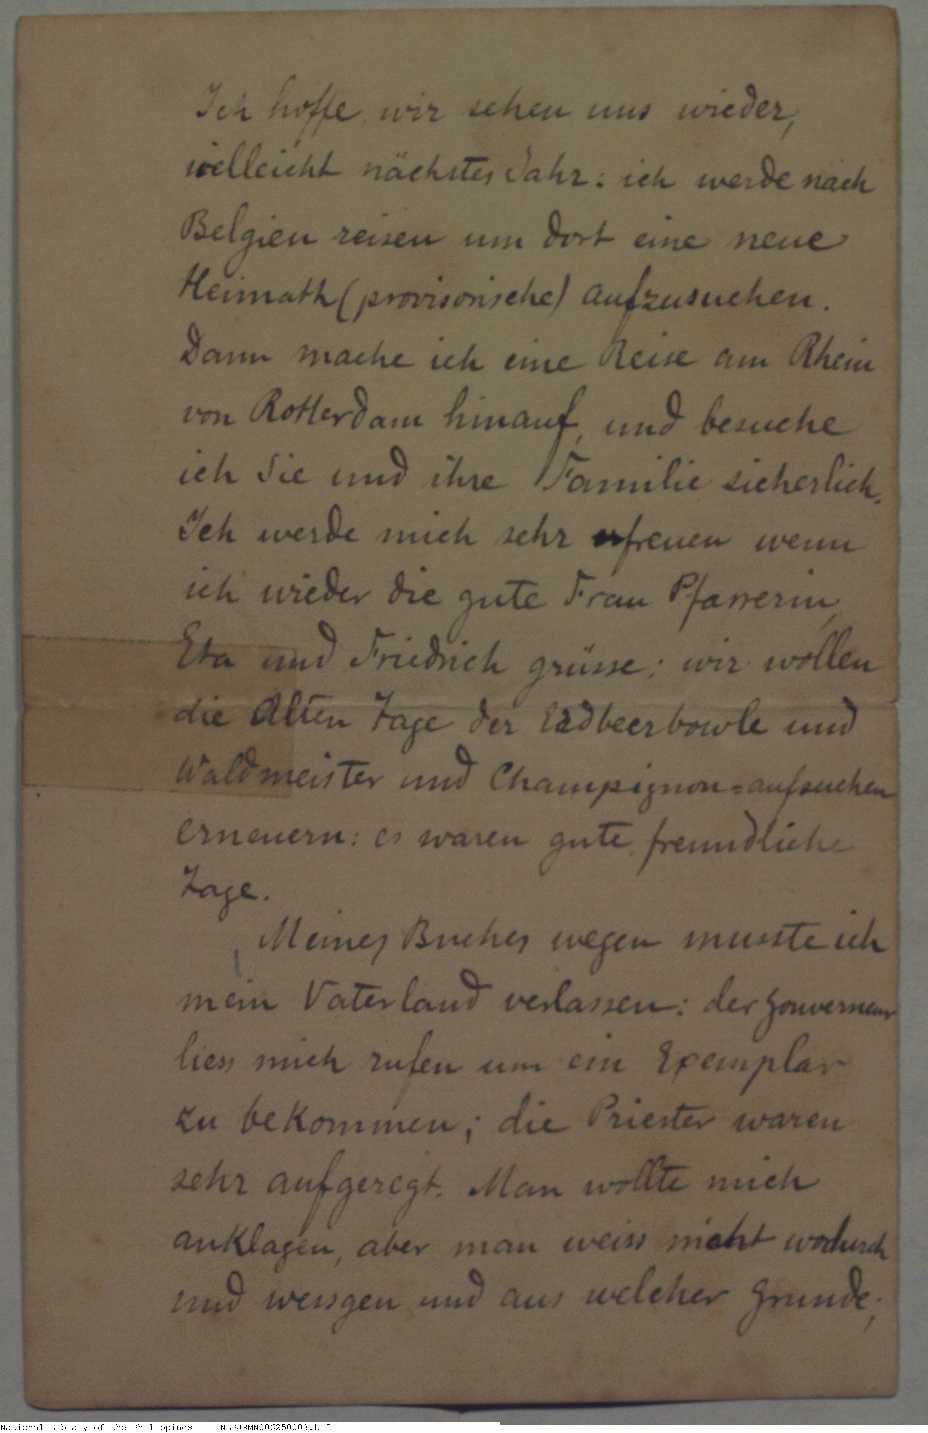 Ich hoffe, wir sehen uns wieder,
vielleicht nächstes Jahr: ich werde nach
Belgien reisen um dort eine neue
Heimath (provisorische) aufzusuchen.
Dann mache ich eine Reise am Rhein
von Rotterdam hinauf, und besuche
ich Sie und ihre Familie sicherlich.
Ich werde mich sehr erfreuen wenn
ich wieder die gute Frau Pfarrerin,
Eta und Friedrich grüsse; wir wollen
die Alten Tage der Erdbeerbowle und
Waldmeister und Champignon=aufsuchen
erneuern: es waren gute freundliche
Tage.
Meines Buches wegen musste ich
mein Vaterland verlassen: der Gouverneur
liess mich rufen um ein Exemplar
zu bekommen; die Priester waren
sehr aufgeregt. Man wollte mich
anklagen, aber man weiss nicht wodurch
und wessgen und aus welcher Grunde;
National Library of the Philippines